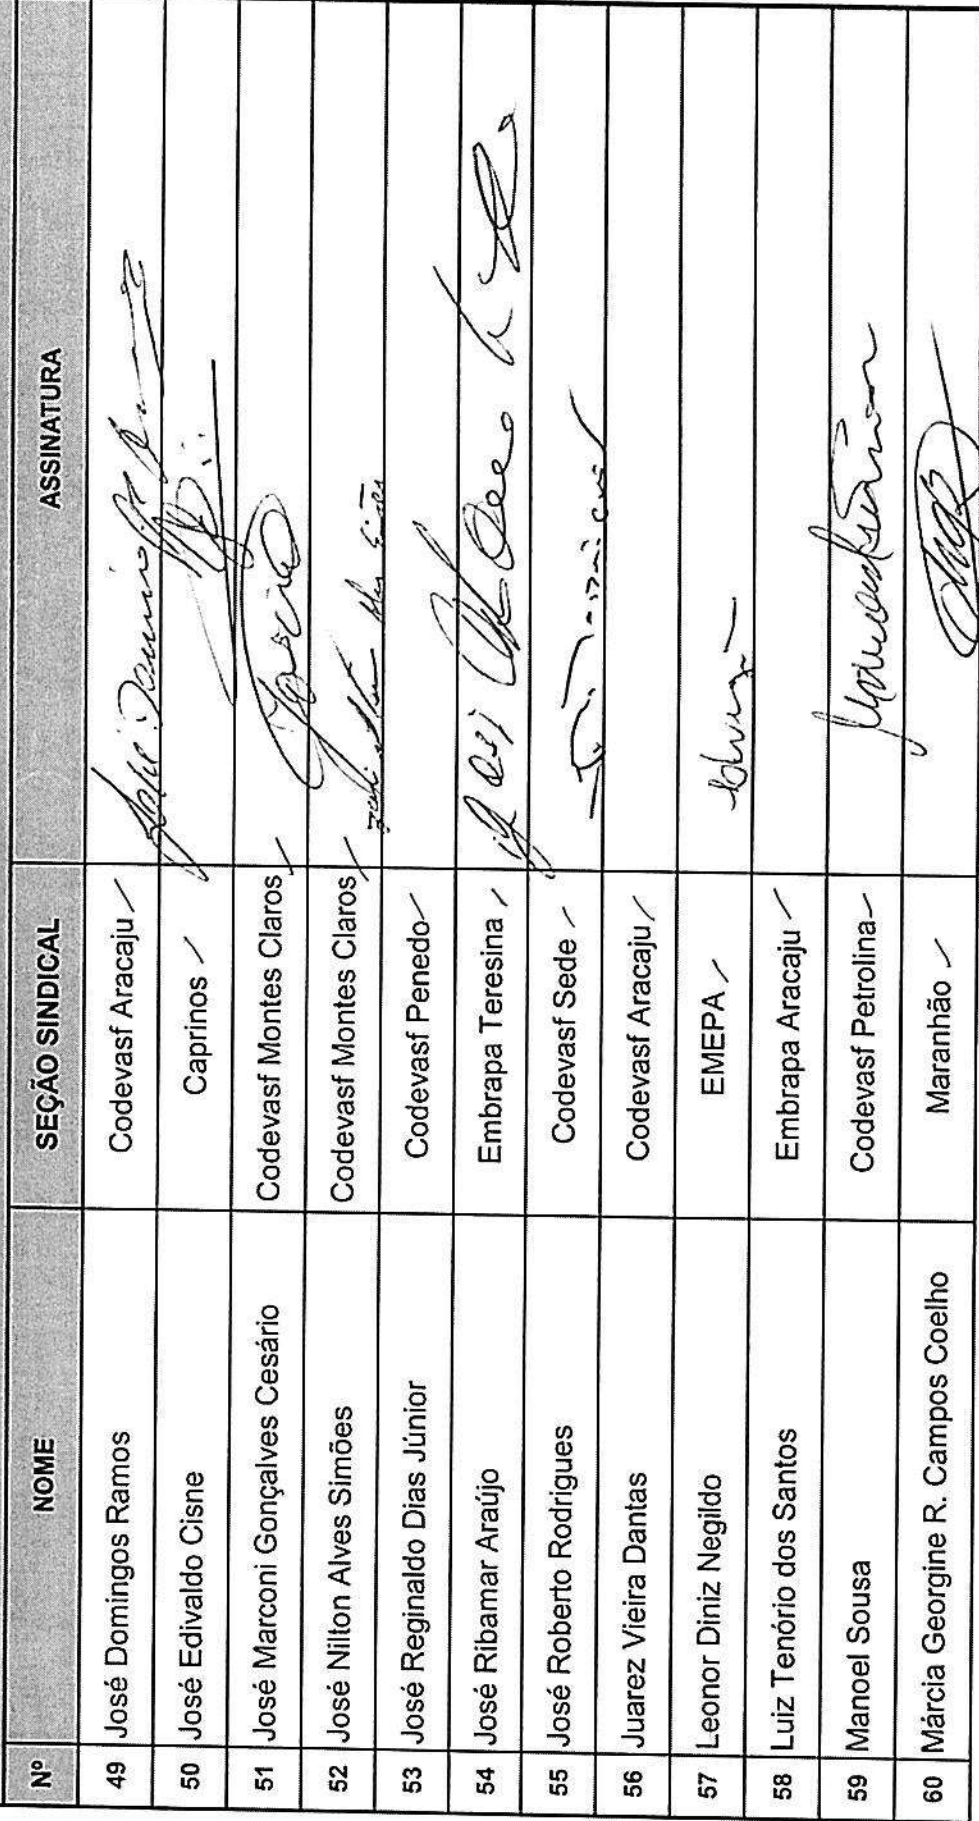 Nº NOME SEÇÃO SINDICAL ASSINATURA
49 José Domingos Ramos Codevasf Aracaju
50 José Edivaldo Cisne Caprinos
51 José Marconi Gonçalves Cesário Codevasf Montes Claros
52 José Nilton Alves Simões Codevasf Montes Claros
53 José Reginaldo Dias Júnior Codevasf Penedo
54 José Ribamar Araújo Embrapa Teresina
55 José Roberto Rodrigues Codevasf Sede
56 Juarez Vieira Dantas Codevasf Aracaju
57 Leonor Diniz Negildo EMEPA
58 Luiz Tenório dos Santos Embrapa Aracaju
59 Manoel Sousa Codevasf Petrolina
60 Márcia Georgine R. Campos Coelho Maranhão